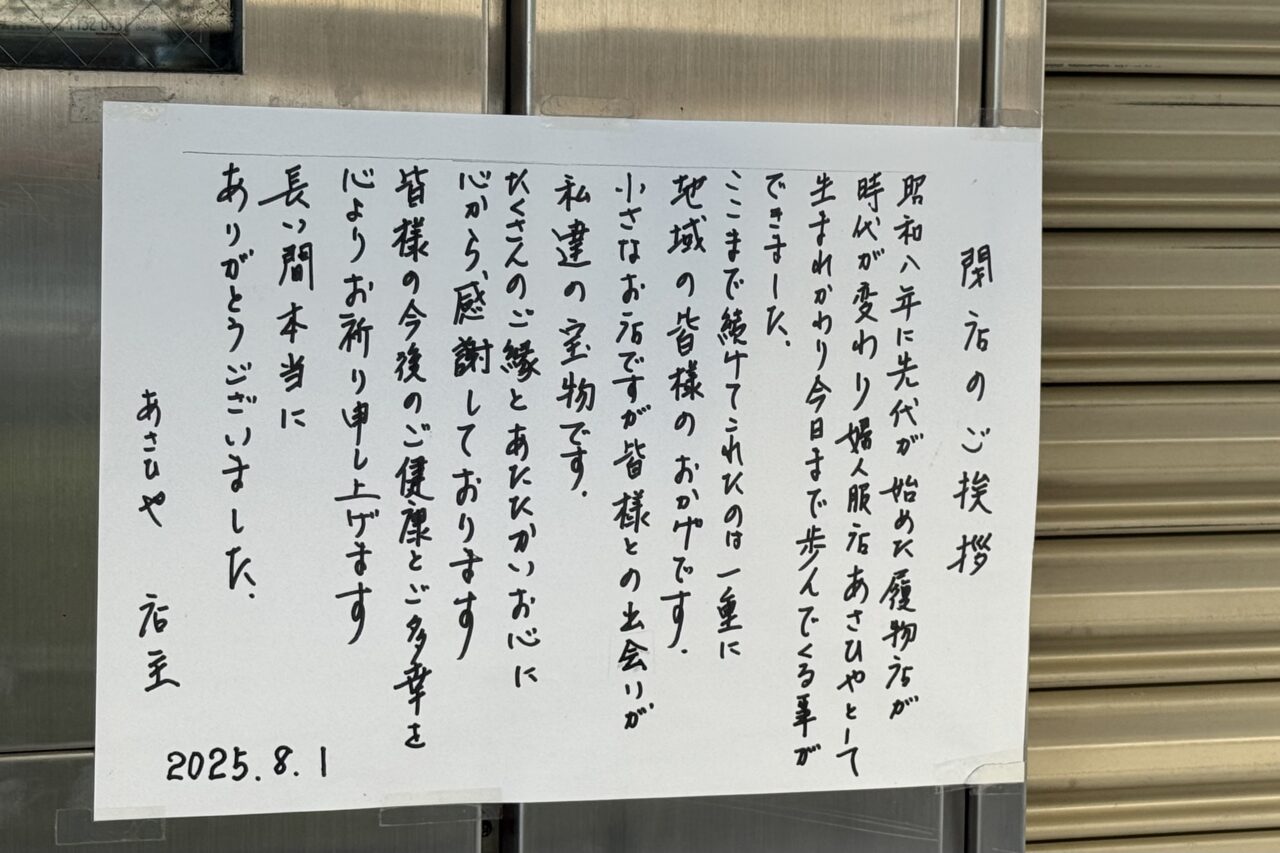 閉店のご挨拶
昭和八年に先代が始めた履物店が
時代が変わり婦人服店あさひやとして
生まれかわり今日まで歩んでくる事が
できました.
ここまで続けてこれたのは一重に
地域の皆様のおかげです.
小さなお店ですが皆様との出会いが
私達の宝物です.
たくさんのご縁とあたたかいお心に
心から、感謝しております
皆様の今後のご健康とご多幸を
心よりお祈り申し上げます
長い間本当に
ありがとうございました.
あさひや 店主
2025.8.1